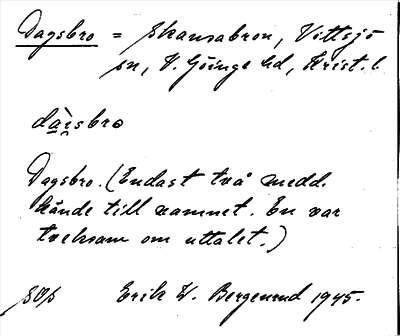 Dagsbro = Skansabron, Vittsjö
sn, V. Göinge hd, Krist. l.
dàsbro
Dagsbro. (Endast två medd.
kände till namnet. En var
tveksam om uttalet.)
SOS Erik W. Bergenrud 1945.